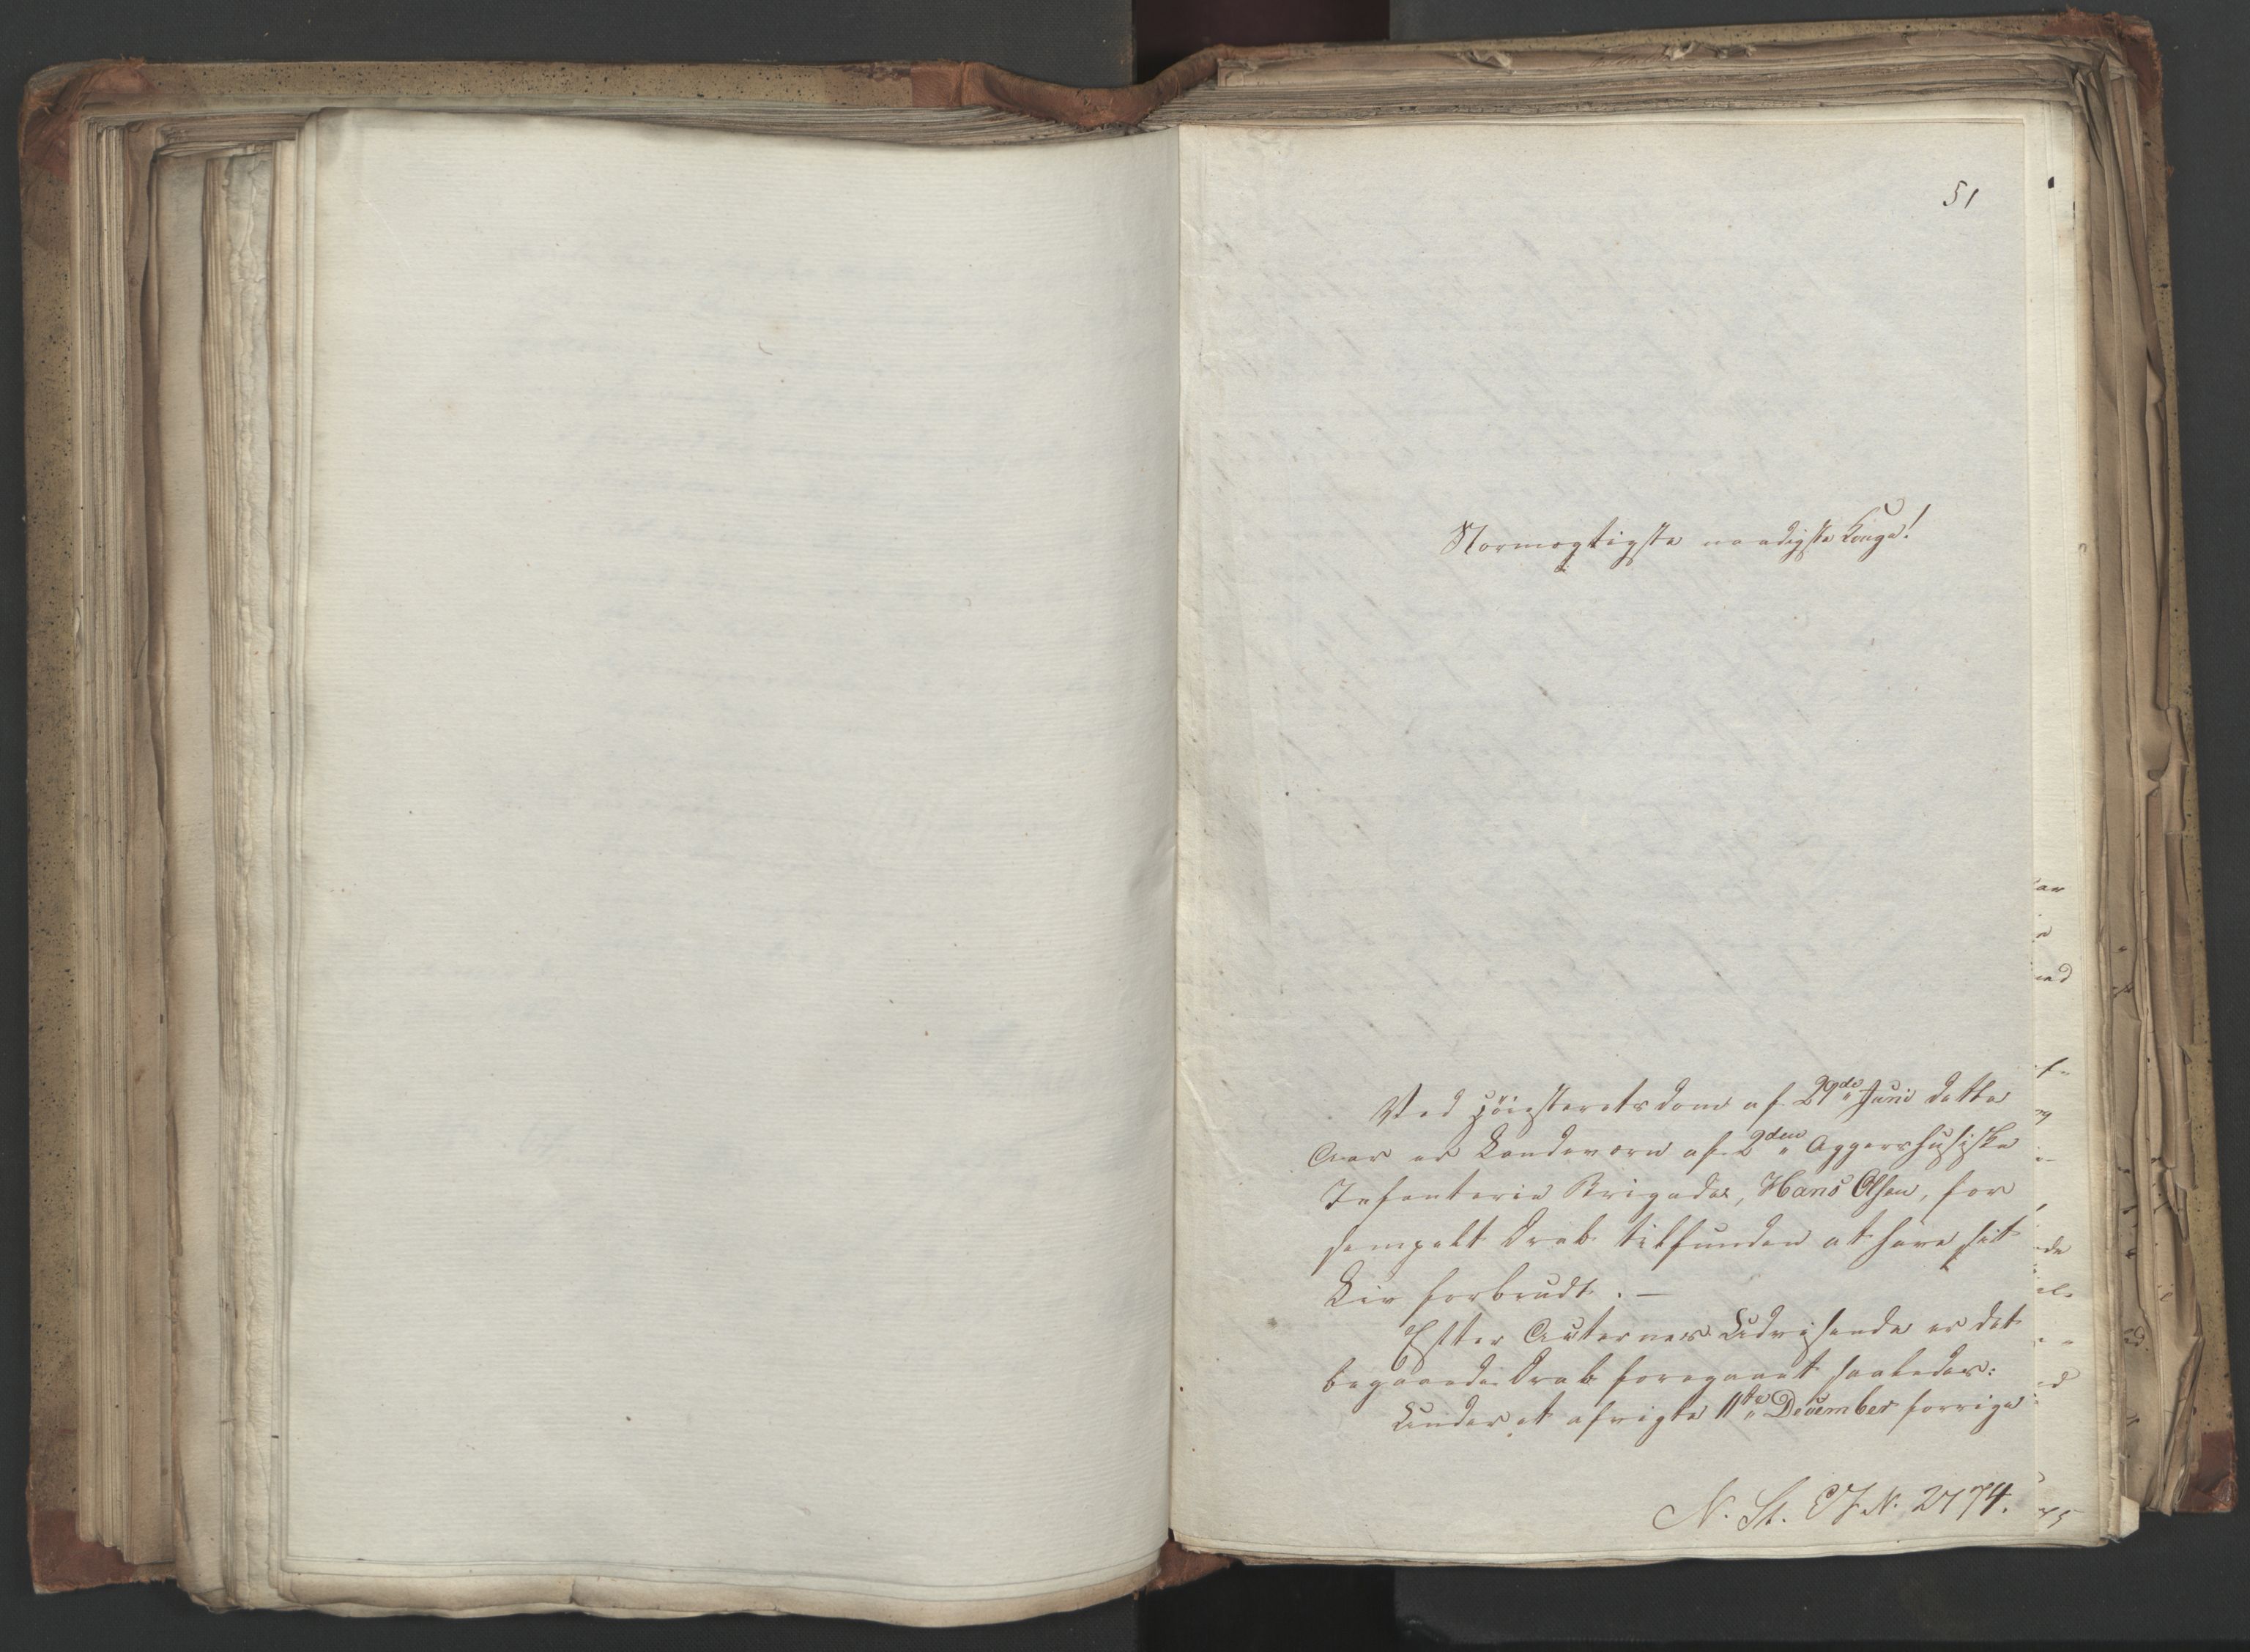 51
Stormægtigste naadigste Konge!
Ved Høiesteretsdom af 29de Juni dette
Aar er Landeværn af 2den Aggershusiske
Infanterie Brigade, Hans Olsen, for
simpelt Drab tilfunden at have sit
Liv forbrudt. —
Efter Acternes Udvisende er det
begaaede Drab foregaaet saaledes:
Under et afvigte 11te December forrige
N. St. E J. N. 2774.